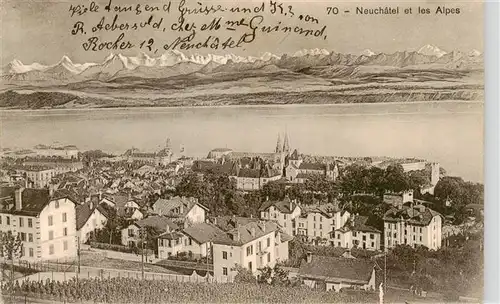 Viele tausend Grüsse und Küsse von
R. Aebersold, chez Mme Guinand,
Rocher 12, Neuchâtel
70 - Neuchâtel et les Alpes